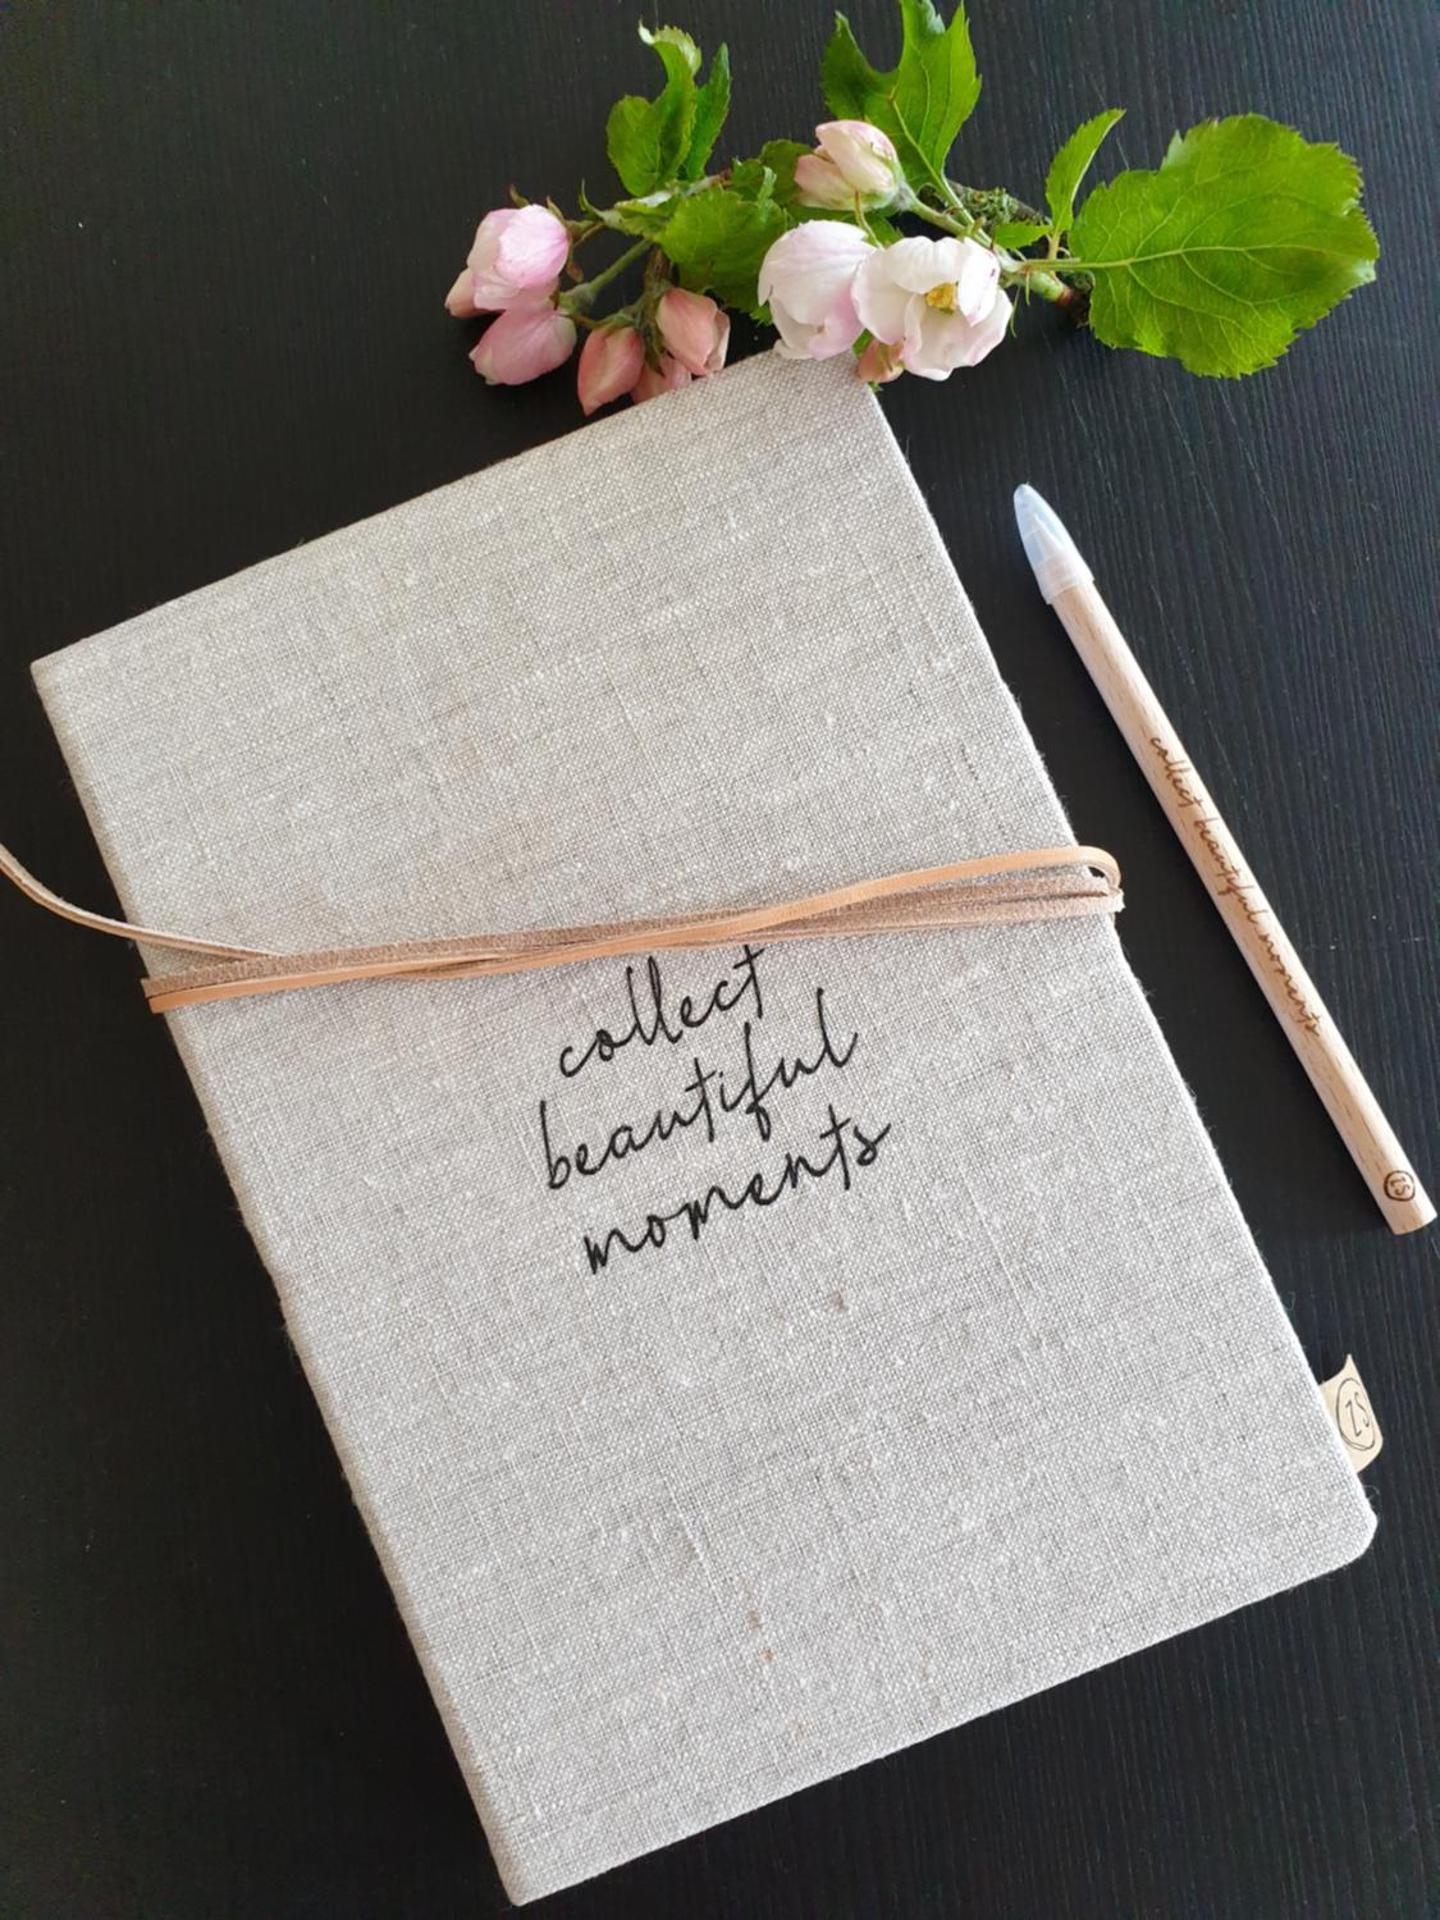 collect
beautiful
moments
collect beautiful moments
ZS
ZS